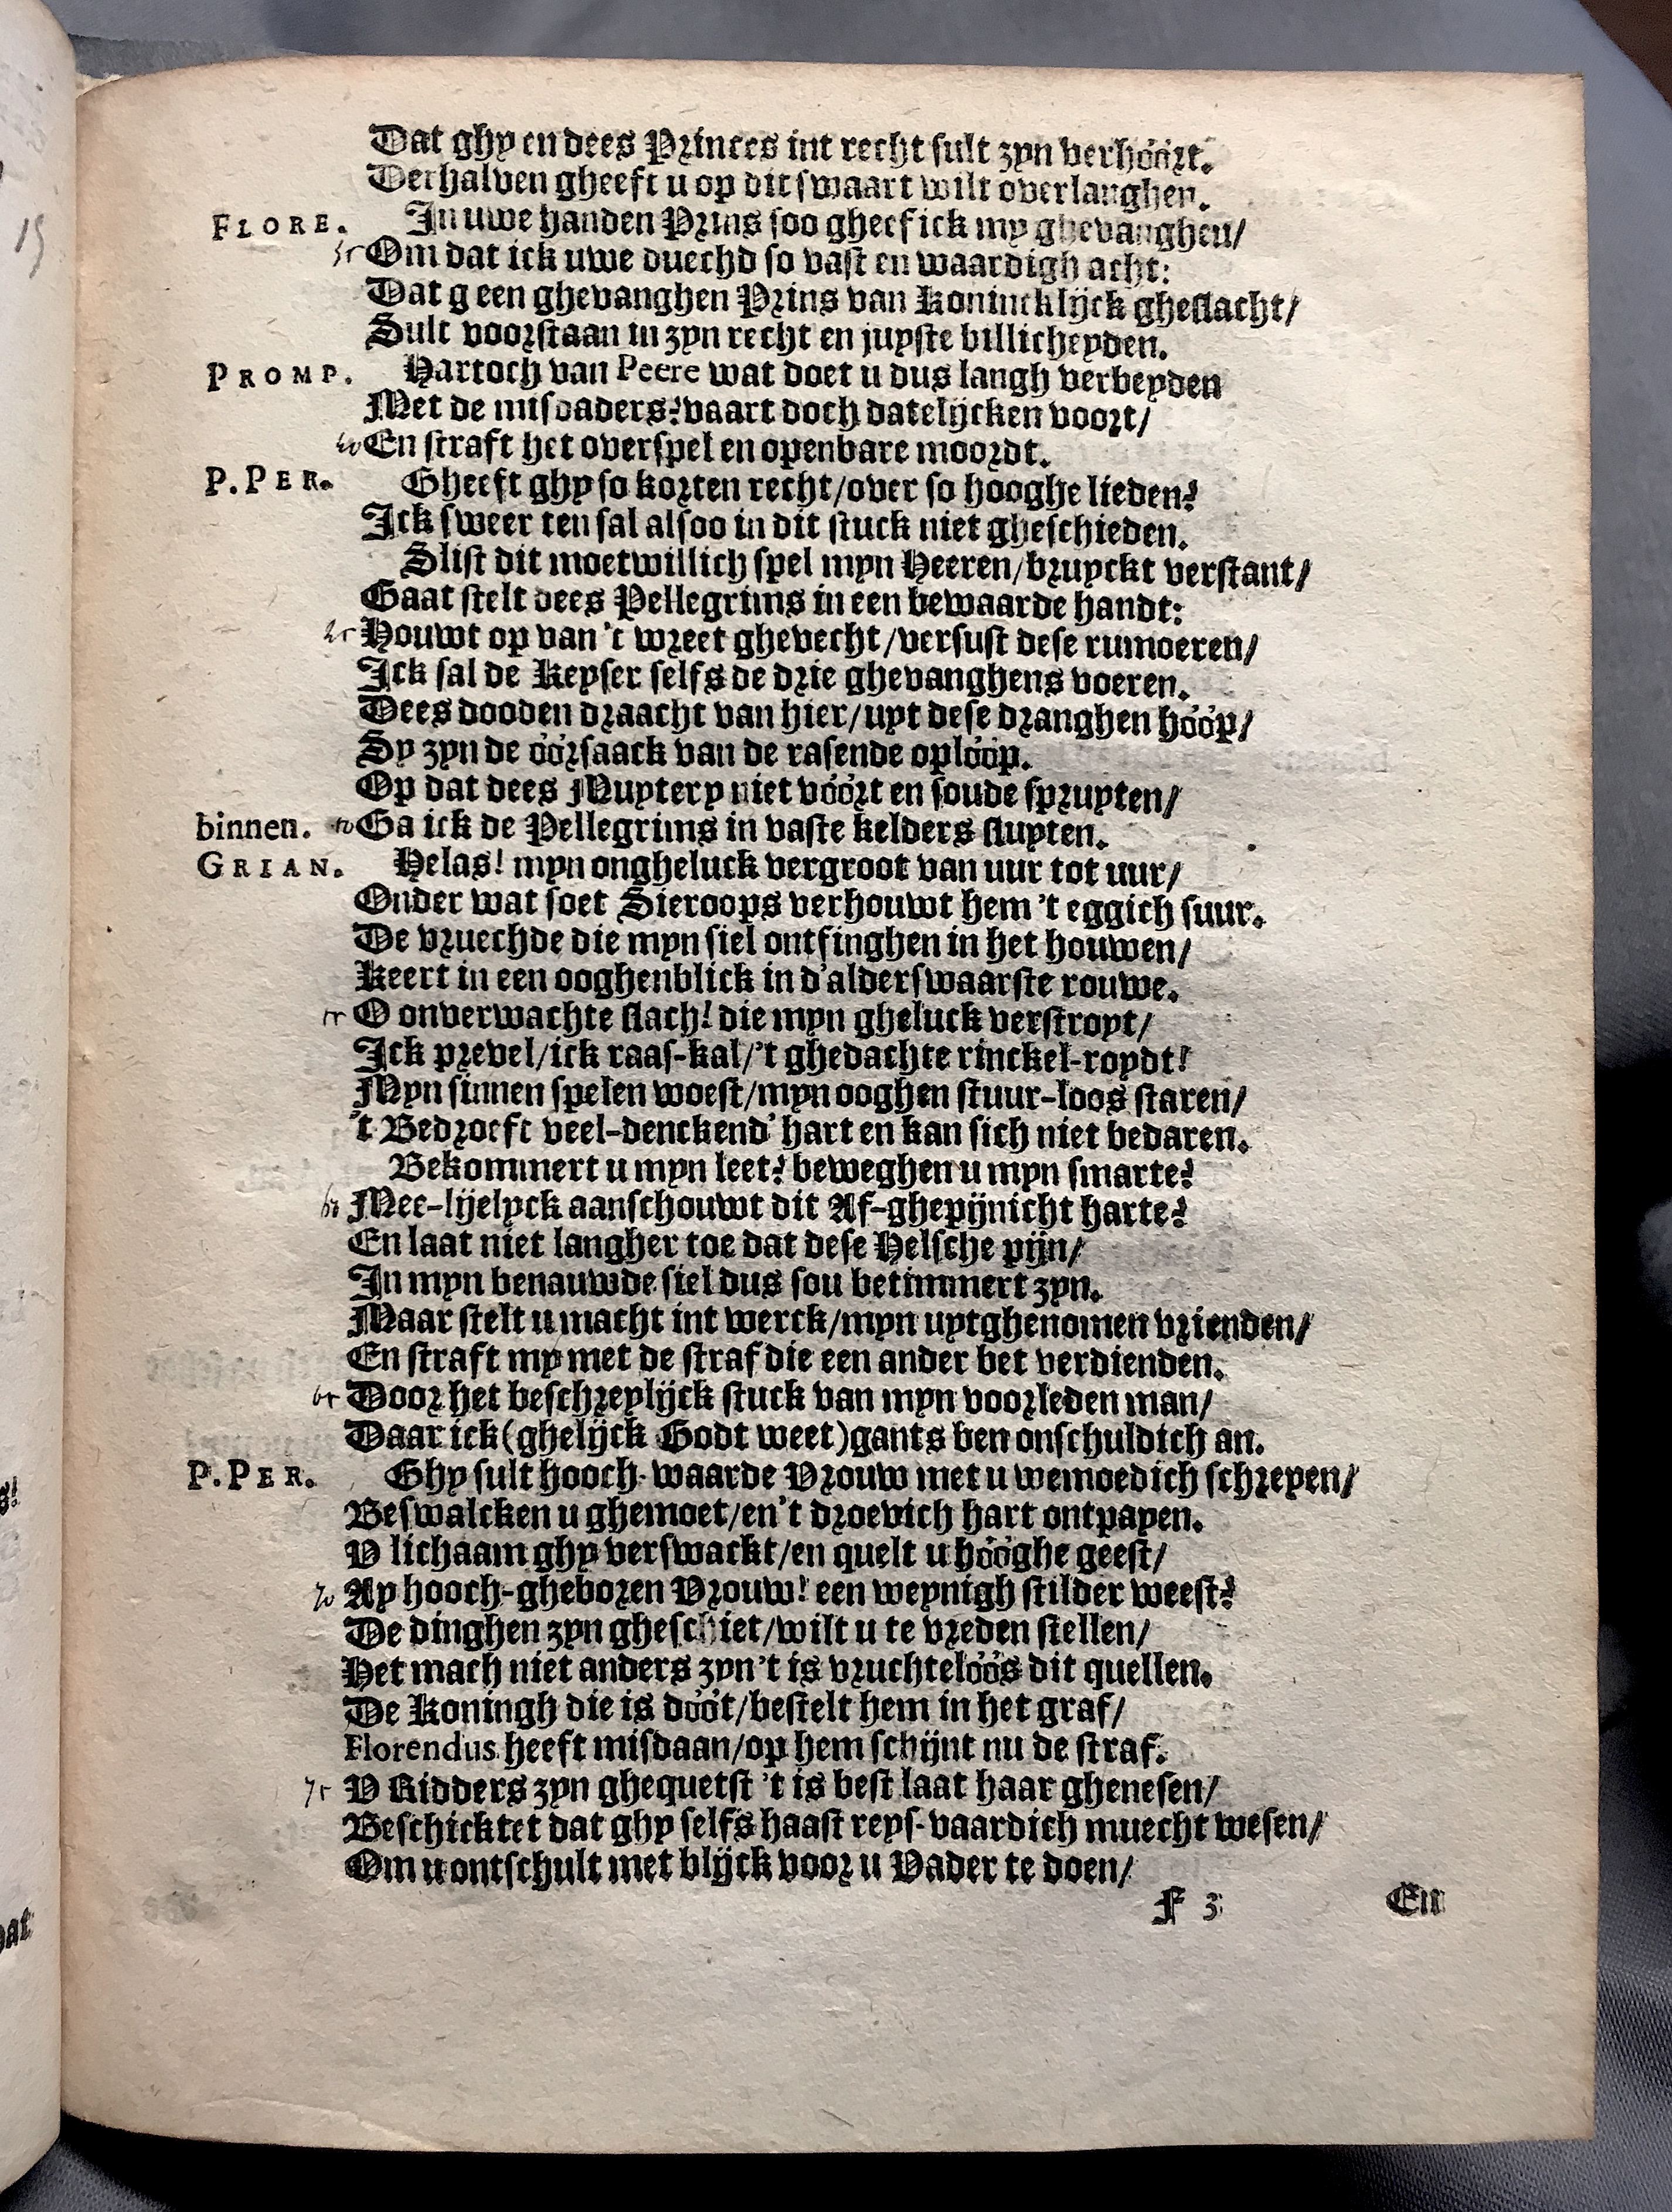 Dat ghy en dees Princes int recht sult zyn verhóórt.
Derhalven gheeft u op dit swaart wilt overlanghen.
FLORE. In uwe handen Prins soo gheef ick my ghevanghen/
35 Om dat ick uwe duechd so vast en waardigh acht:
Dat g een ghevanghen Prins van Konincklijck gheslacht/
Sult voorstaan in zyn recht en juyste billicheyden.
PROMP. Hartoch van Peere wat doet u dus langh verbeyden
Met de misdaders? vaart doch datelijcken voort/
40 En straft het overspel en openbare moordt.
P.PER. Gheeft ghy so korten recht/over so hooghe lieden?
Ick sweer ten sal alsoo in dit stuck niet gheschieden.
Slist dit moetwillich spel myn Heeren/bruyckt verstant/
Gaat stelt dees Pellegrims in een bewaarde handt:
45 Houwt op van 't wreet ghevecht/versust dese rumoeren/
Ick sal de Keyser selfs de drie ghevanghens voeren.
Dees dooden draacht van hier/uyt dese dranghen hóóp/
Sy zyn de óórsaack van de rasende oplóóp.
Op dat dees Muytery niet vóórt en soude spruyten/
binnen. 50 Ga ick de Pellegrims in vaste kelders sluyten.
GRIAN. Helas! myn ongheluck vergroot van uur tot uur/
Onder wat soet Sieroops verhouwt hem 't eggich suur.
De vruechde die myn siel ontfinghen in het houwen/
Keert in een ooghenblick in d'alderswaarste rouwe.
55 O onverwachte slach! die myn gheluck verstroyt/
Ick prevel/ick raas-kal/'t ghedachte rinckel-roydt!
Myn sinnen spelen woest/myn ooghen stuur-loos staren/
't Bedroeft veel-denckend' hart en kan sich niet bedaren.
Bekommert u myn leet? beweghen u myn smarte?
60 Mee-lijelyck aanschouwt dit Af-ghepijnicht harte?
En laat niet langher toe dat dese Helsche pijn/
In myn benauwde siel dus sou betimmert zyn.
Maar stelt u macht int werck/myn uytghenomen vrienden/
En straft my met de straf die een ander bet verdienden.
65 Door het beschreylijck stuck van myn voorleden man/
Daar ick (ghelijck Godt weet) gants ben onschuldich an.
P.PER. Ghy sult hooch-waarde Vrouw met u wemoedich schreyen/
Beswalcken u ghemoet/en 't droevich hart ontpayen.
V lichaam ghy verswackt/en quelt u hóóghe geest/
70 Ay hooch-gheboren Vrouw! een weynigh stilder weest?
De dinghen zyn gheschiet/wilt u te vreden stellen/
Het mach niet anders zyn 't is vruchtelóós dit quellen.
De Koningh die is dóót/bestelt hem in het graf/
Florendus heeft misdaan/op hem schijnt nu de straf.
75 V Ridders zyn ghequetst 't is best laat haar ghenesen/
Beschicktet dat ghy selfs haast reys-vaardich muecht wesen/
Om u ontschult met blijck voor u Vader te doen/
F 3 En